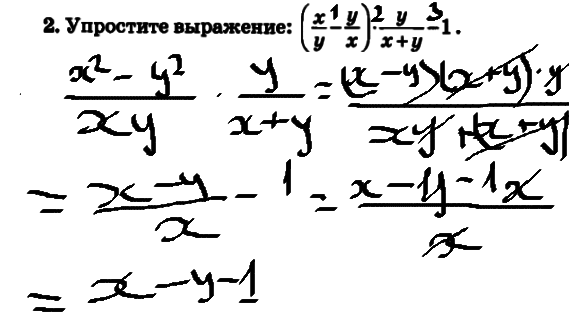 2. Упростите выражение: (x/y 1− y/x) 2· y/(x+y) 3− 1.
(x² − y²)/(xy) · y/(x+y) = ((x−y)(x+y)·y)/(xy · (x+y))
= (x−y)/x − 1 = (x−1y−1x)/x
= x−y−1